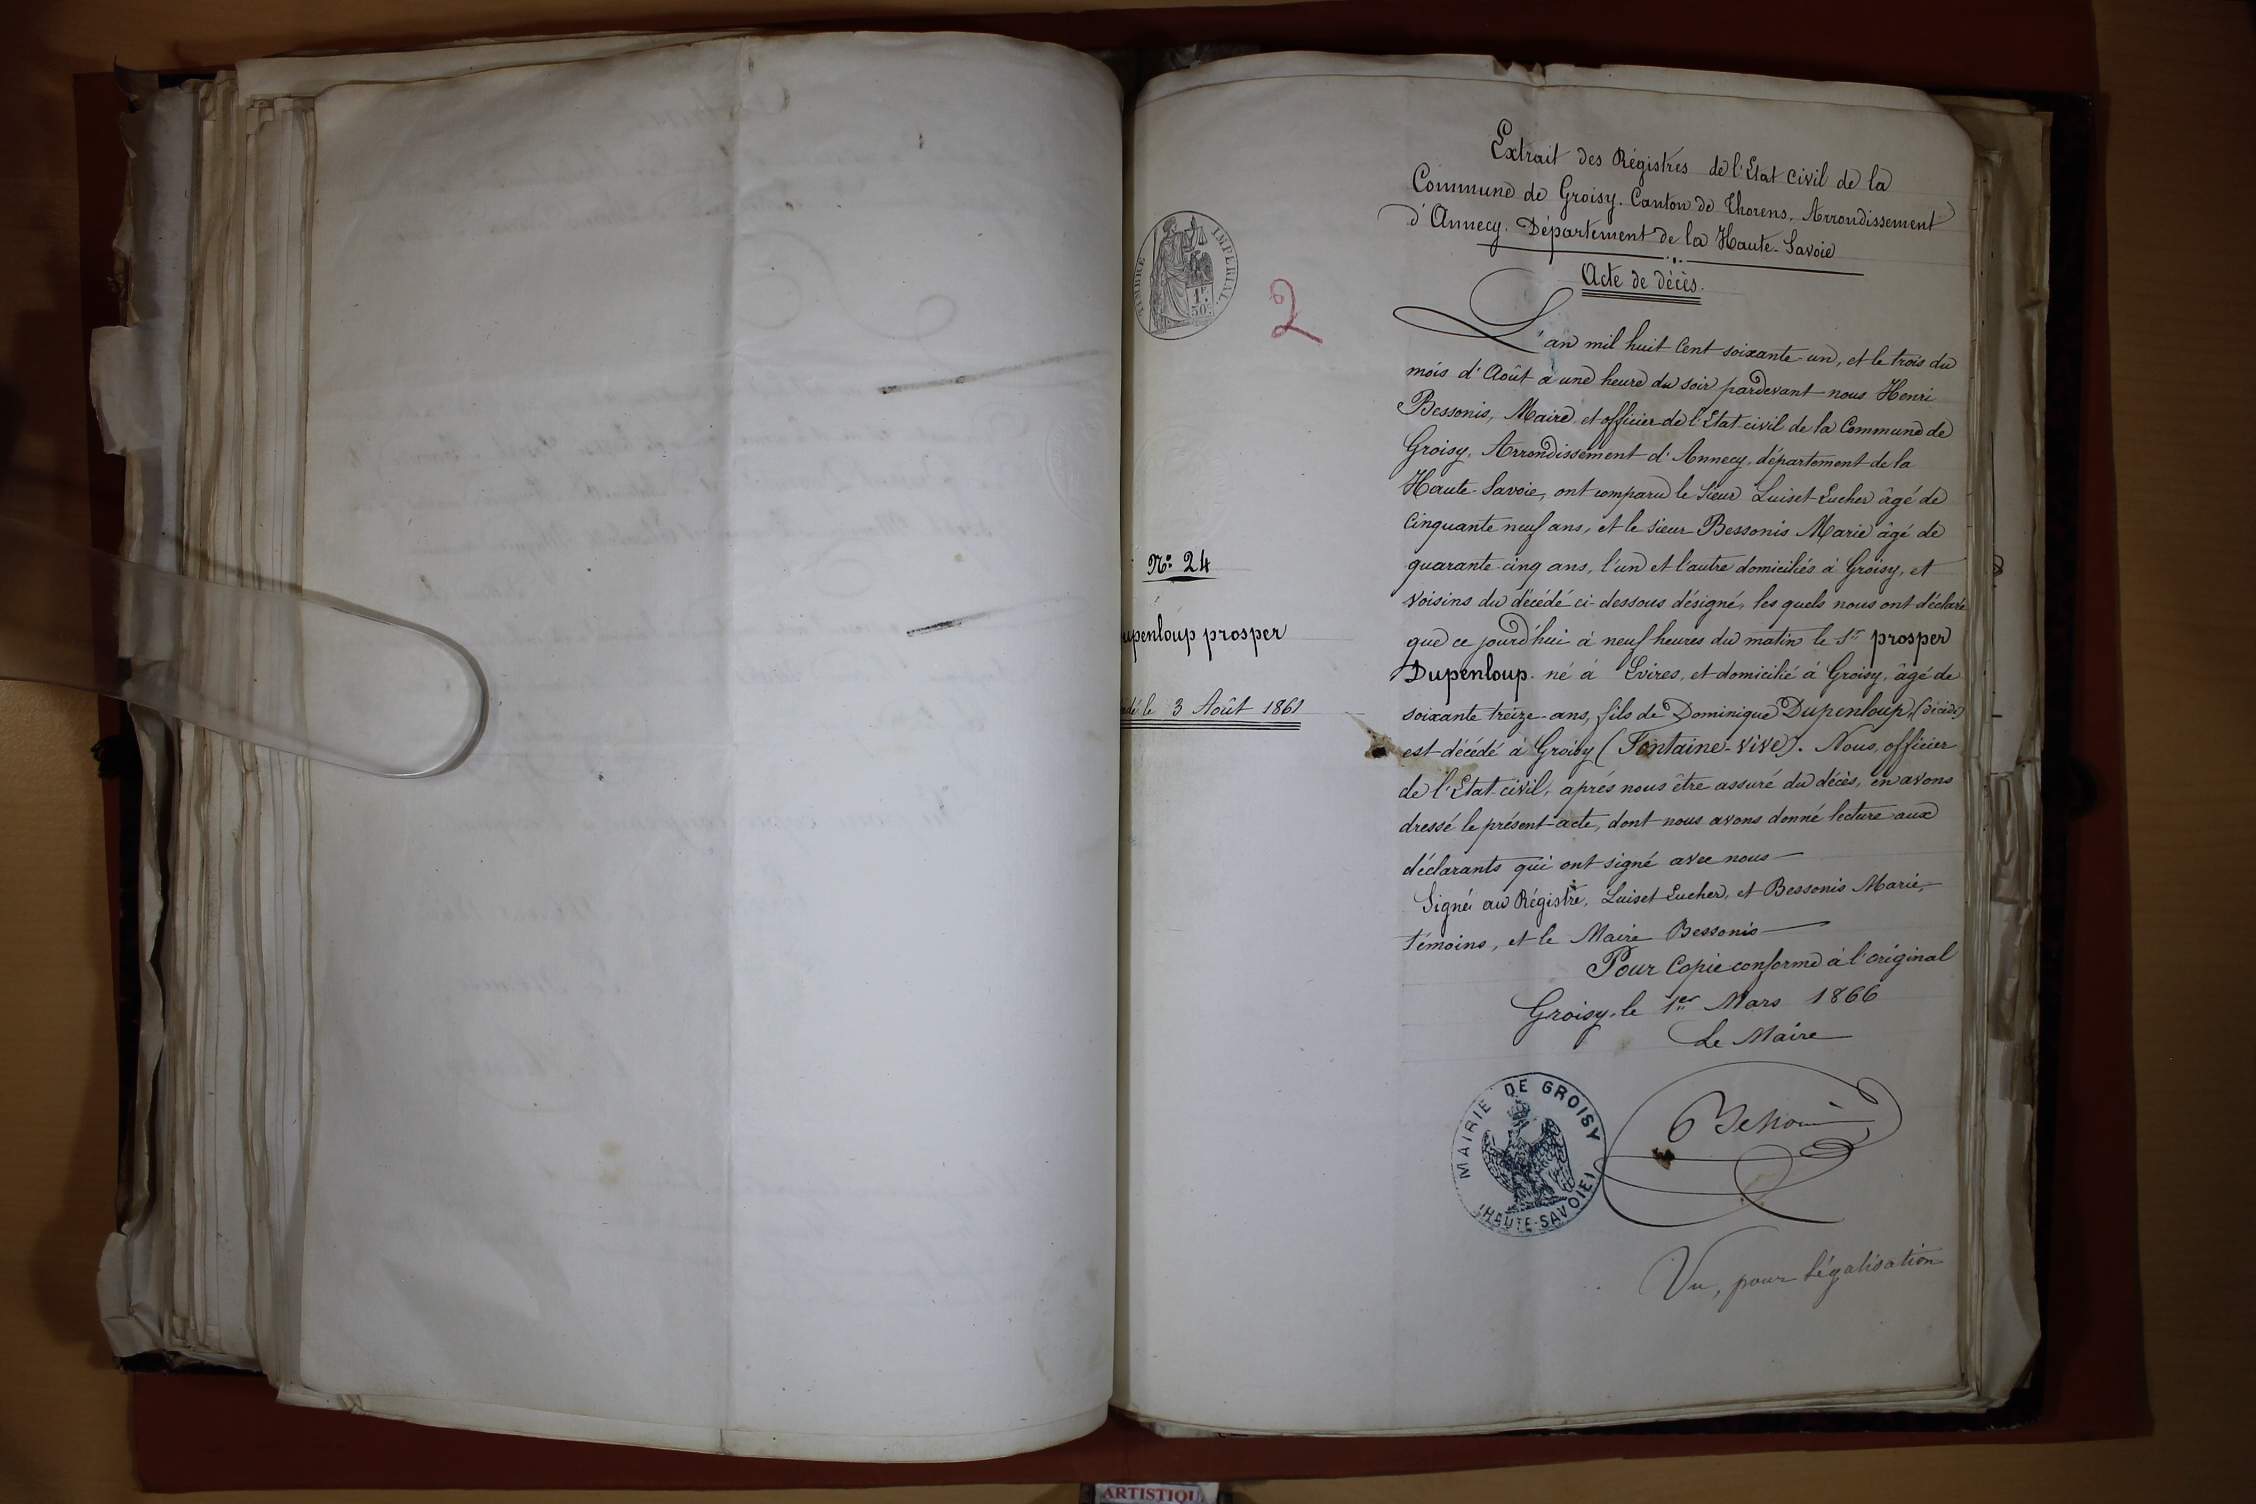 Extrait des Régistres de l'Etat civil de la
Commune de Groisy. Canton de Thorens, Arrondissement
d'Annecy. Département de la Haute-Savoie
Acte de décès.
TIMBRE IMPERIAL
1F.
50C.
2
L'an mil huit cent soixante-un, et le trois du
mois d'Août à une heure du soir pardevant nous Henri
Bessonis, Maire et officier de l'Etat-civil de la Commune de
Groisy, Arrondissement d'Annecy, département de la
Haute-Savoie, ont comparu le Sieur Luiset-Eucher âgé de
Cinquante neuf ans, et le sieur Bessonis Marie âgé de
quarante-cinq ans, l'un et l'autre domiciliés à Groisy, et
voisins du décédé ci-dessous désigné, les quels nous ont déclaré
que ce jourd'hui à neuf heures du matin le Sr prosper
Dupenloup né à Evires, et domicilié à Groisy, âgé de
soixante treize ans, fils de Dominique Dupenloup, (décédé)
est décédé à Groisy (Fontaine-vive). Nous, officier
de l'Etat-civil, après nous être assuré du décès, en avons
dressé le présent acte, dont nous avons donné lecture aux
déclarants qui ont signé avec nous
Signé au Régistre, Luiset Eucher, et Bessonis Marie,
témoins, et le Maire Bessonis
Pour Copie conforme à l'original
Groisy, le 1er Mars 1866
Le Maire
Bessonis
MAIRIE DE GROISY
(HAUTE-SAVOIE)
Vu, pour légalisation
No: 24
upenloup prosper
édé le 3 Août 1861
ARTISTIQU